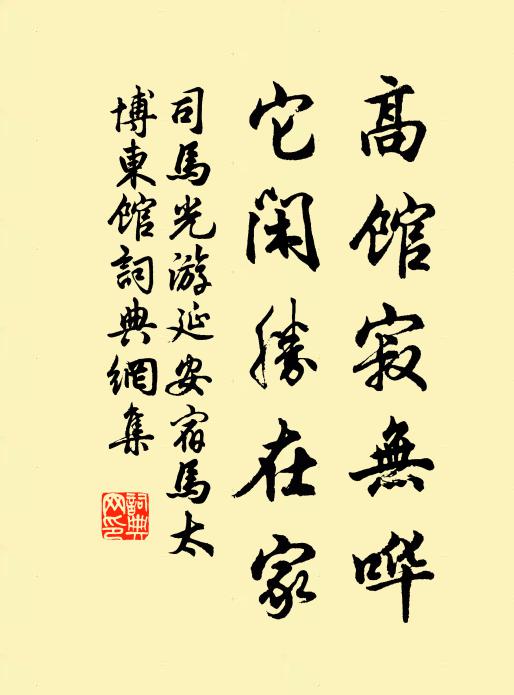 高馆寂無哗
它闲勝在家
司馬光游延安宿馬太
博東馆詞典網集
詞典
网印